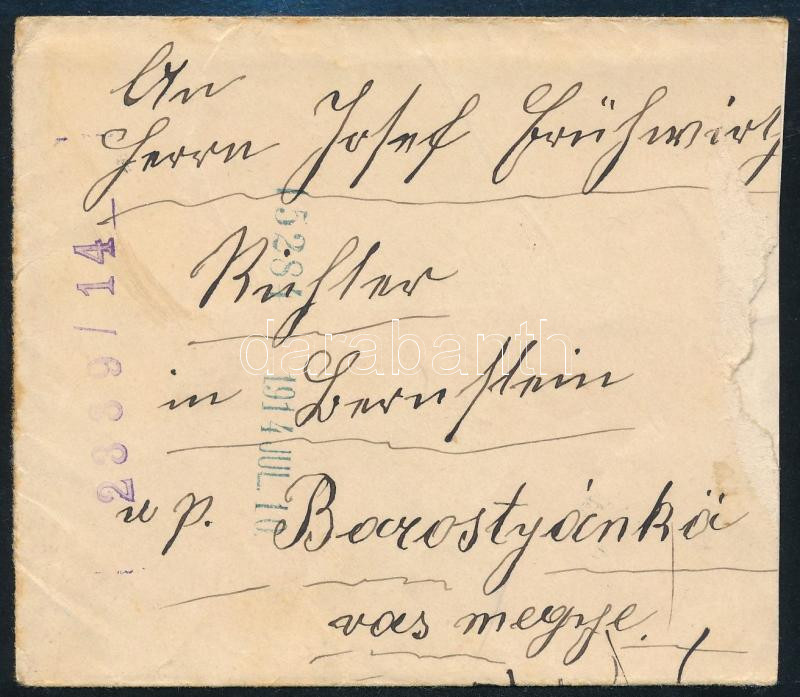 An
Herrn Josef Frühwirth
Richter
in Bernstein
u p. Borostyánkö
vas megye.
2339/14
15281 1914 JUL. 10
darabanth